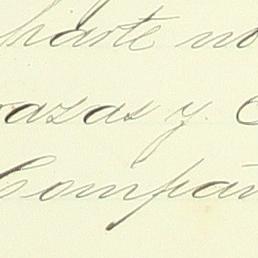 harte no
azas y. C
Compañ